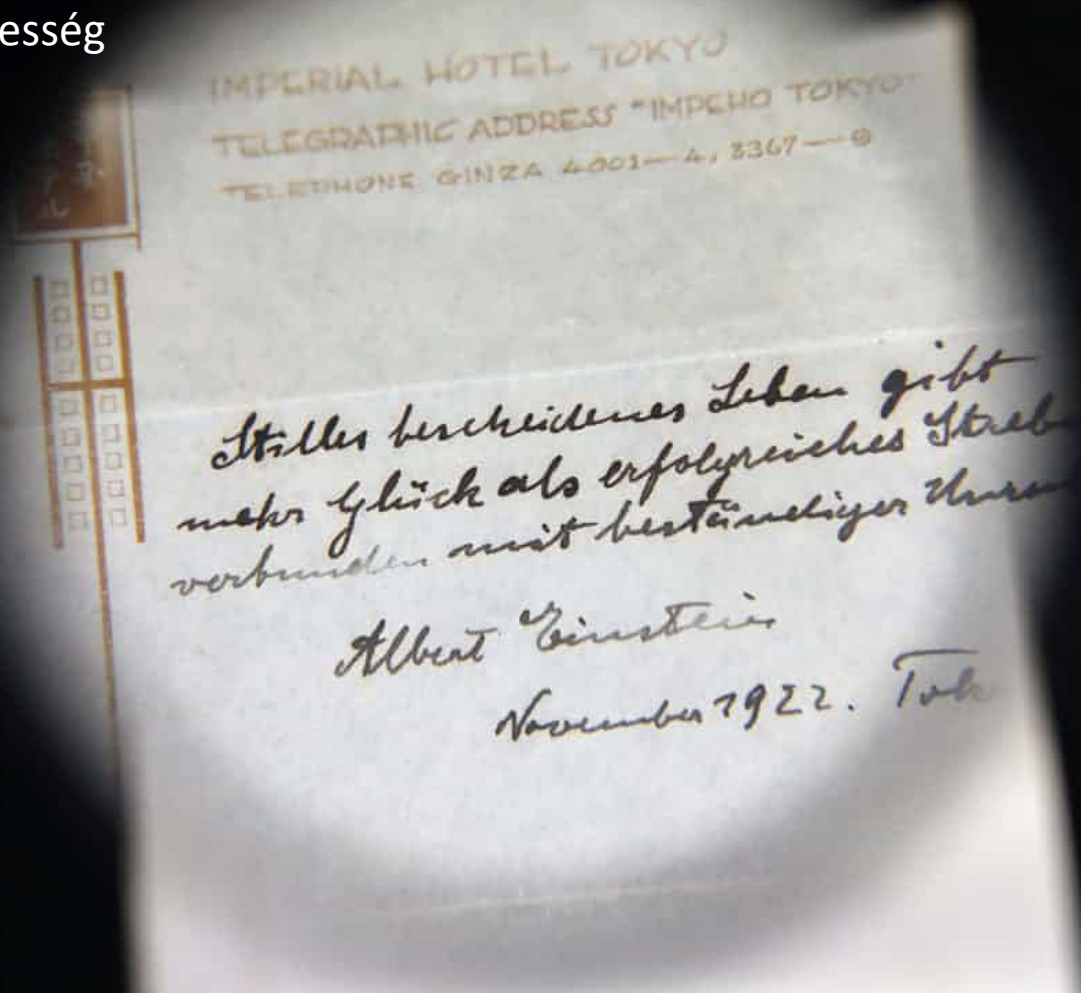 esség
IMPERIAL HOTEL TOKYO
TELEGRAPHIC ADDRESS "IMPEHO TOKYO"
TELEPHONE GINZA 4001—4, 3367—9
Stilles bescheidenes Leben gibt
mehr Glück als erfolgreiches Streb
verbunden mit beständiger Unru
Albert Einstein
November 1922. Tok